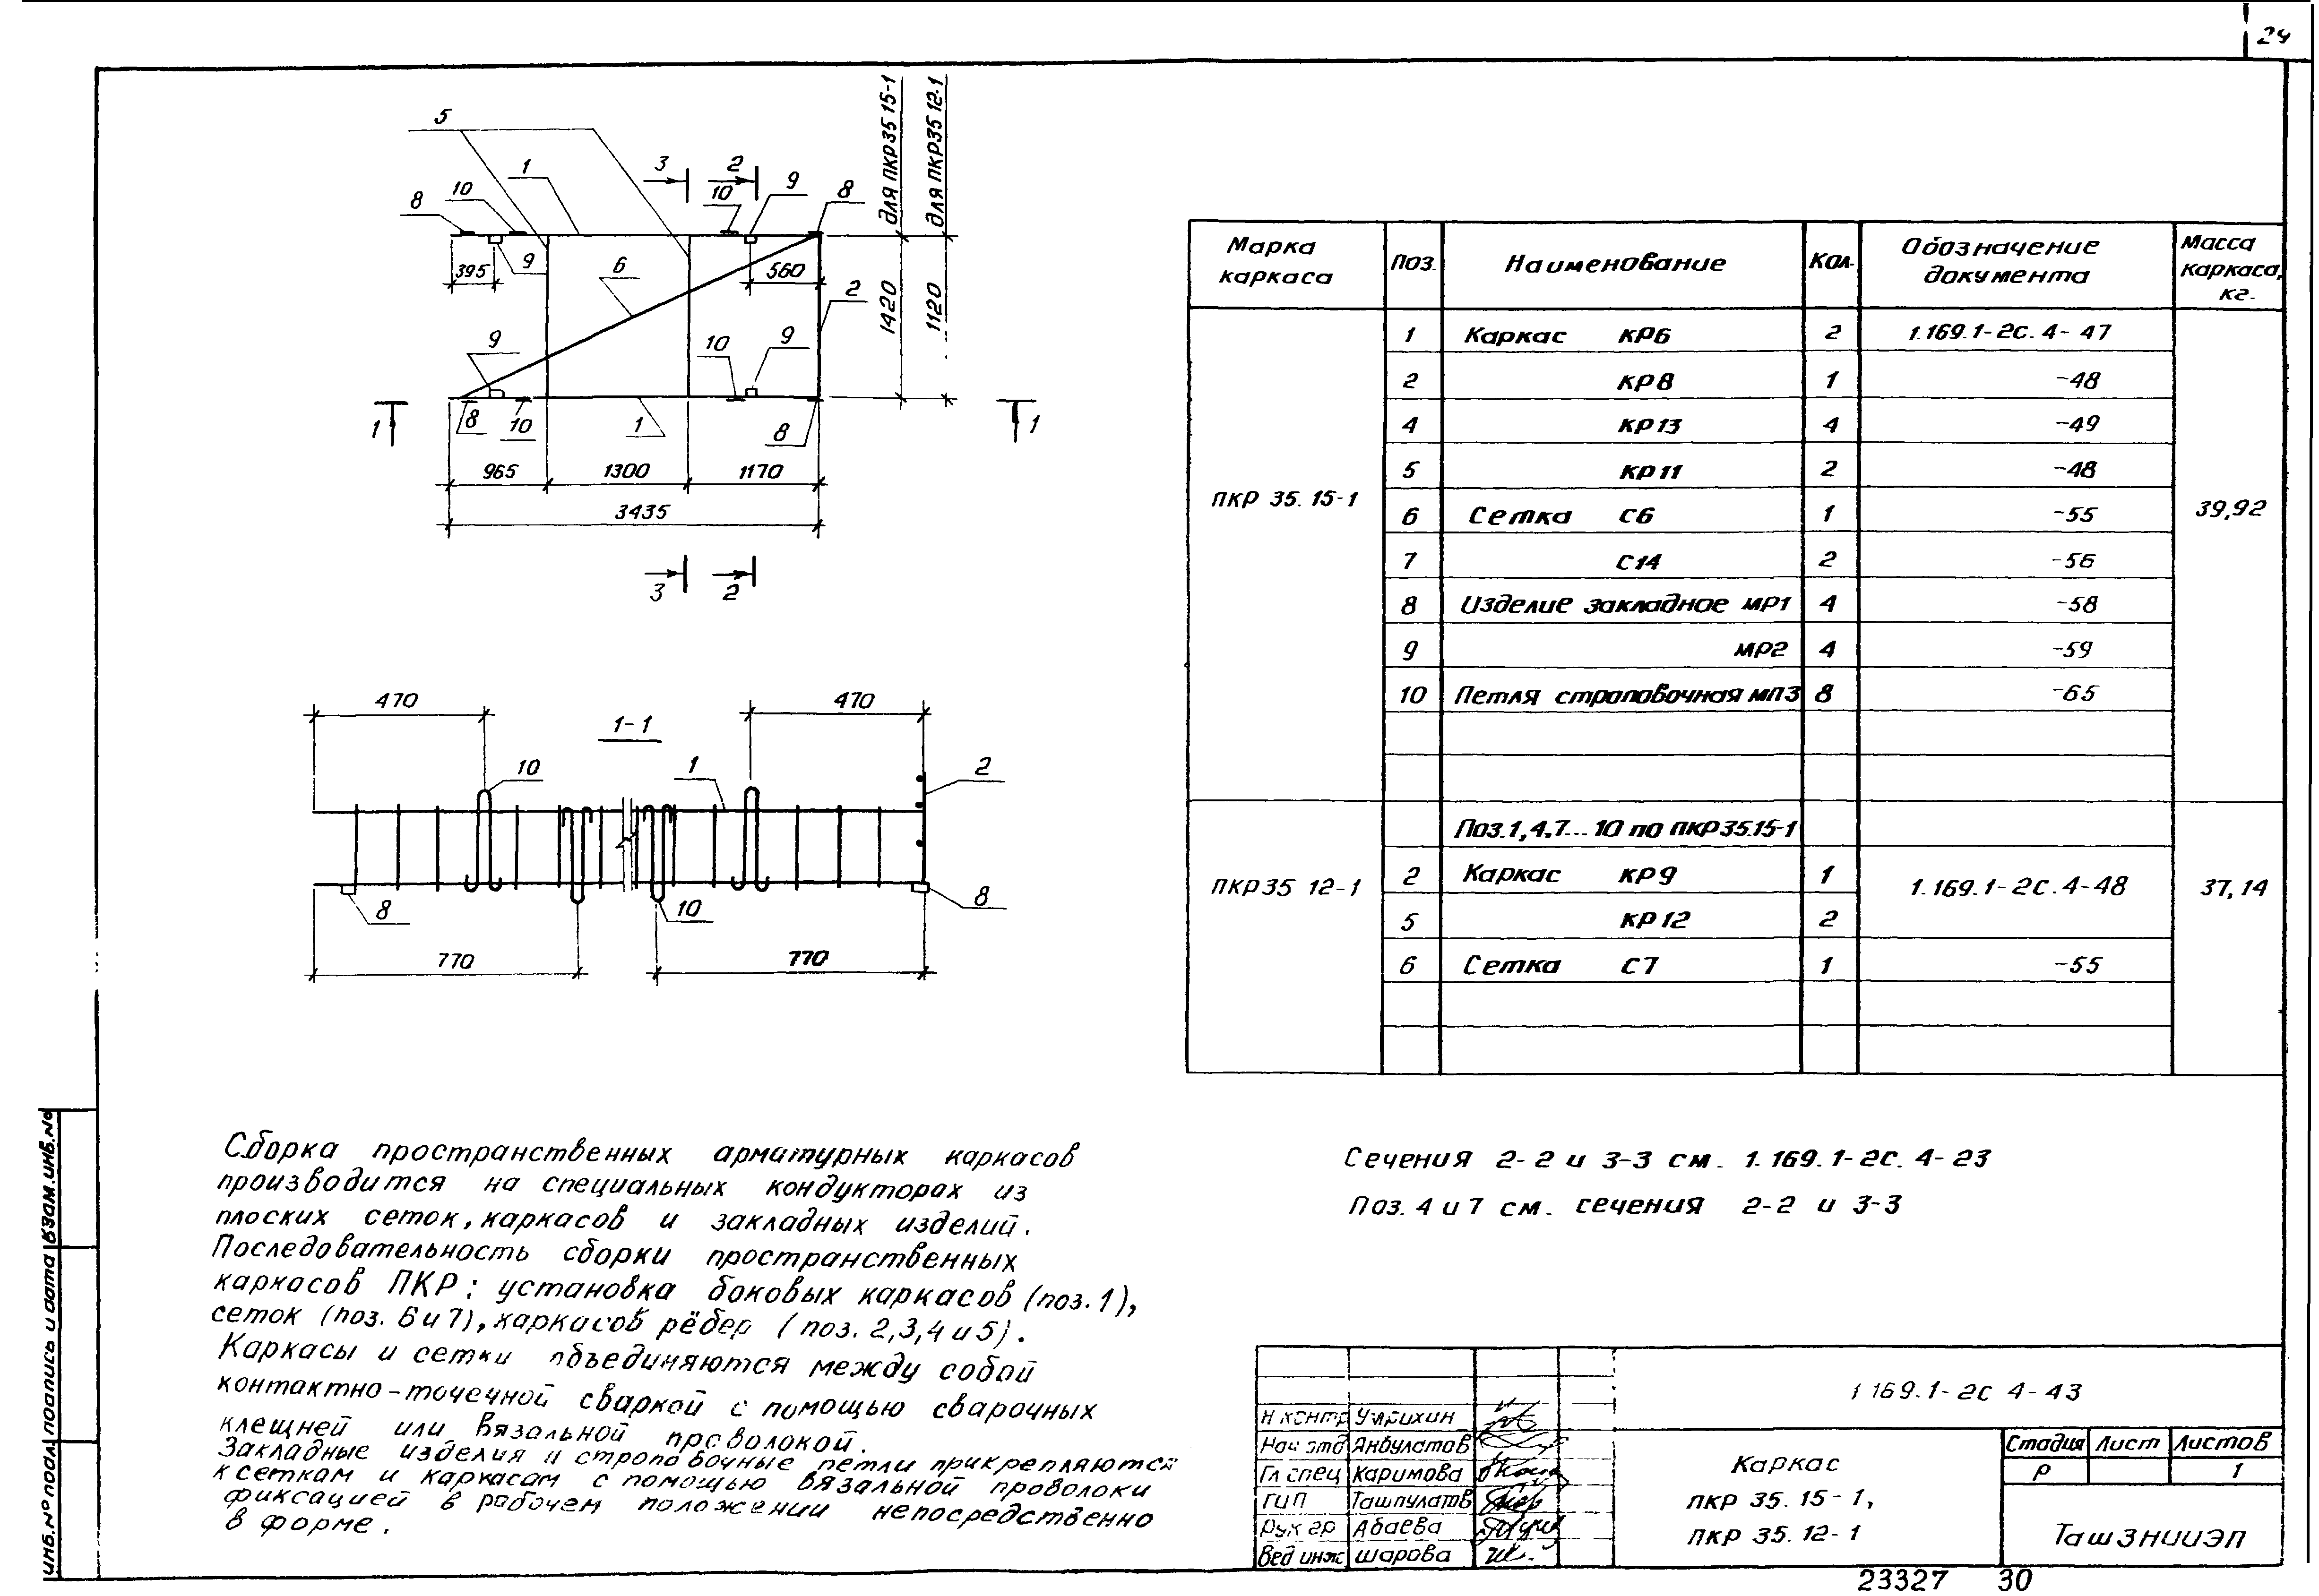 24
для ПКР35 15-1
для ПКР35 12-1
5
1
3
2
10
9
8
8
10
395
9
6
560
2
1420
1120
9
10
9
1
8
10
1
8
1
965
1300
1170
3435
3
2
470
470
1-1
10
1
2
8
10
8
770
770
Марка каркаса
Поз.
Наименование
Кол.
Обозначение документа
Масса каркаса, кг.
ПКР 35.15-1
1 Каркас КР6 2 1.169.1-2с.4-47
2 КР8 1 -48
4 КР13 4 -49
5 КР11 2 -48
6 Сетка С6 1 -55
39,92
7 С14 2 -56
8 Изделие закладное МР1 4 -58
9 МР2 4 -59
10 Петля строповочная МП3 8 -65
Поз.1,4,7...10 по ПКР35.15-1
ПКР35 12-1
2 Каркас КР9 1 1.169.1-2с.4-48
37,14
5 КР12 2
6 Сетка С7 1 -55
Сборка пространственных арматурных каркасов
производится на специальных кондукторах из
плоских сеток, каркасов и закладных изделий.
Последовательность сборки пространственных
каркасов ПКР: установка боковых каркасов (поз.1),
сеток (поз. 6 и 7), каркасов рёбер (поз. 2,3,4 и 5).
Каркасы и сетки объединяются между собой
контактно-точечной сваркой с помощью сварочных
клещней или вязальной проволокой.
Закладные изделия и строповочные петли прикрепляются
к сеткам и каркасам с помощью вязальной проволоки
фиксацией в рабочем положении непосредственно
в форме.
Сечения 2-2 и 3-3 см. 1.169.1-2с.4-23
Поз. 4 и 7 см. сечения 2-2 и 3-3
1 169.1-2с 4-43
Н контр Умрихин
Нач отд Янбулатов
Гл спец Каримова
ГИП Ташпулатов
Рук гр Абаева
Вед инж Шарова
Каркас
ПКР 35. 15-1,
ПКР 35. 12-1
Стадия Лист Листов
Р 1
ТашЗНИИЭП
23327 30
Инв.№ подл. Подпись и дата Взам.инв.№